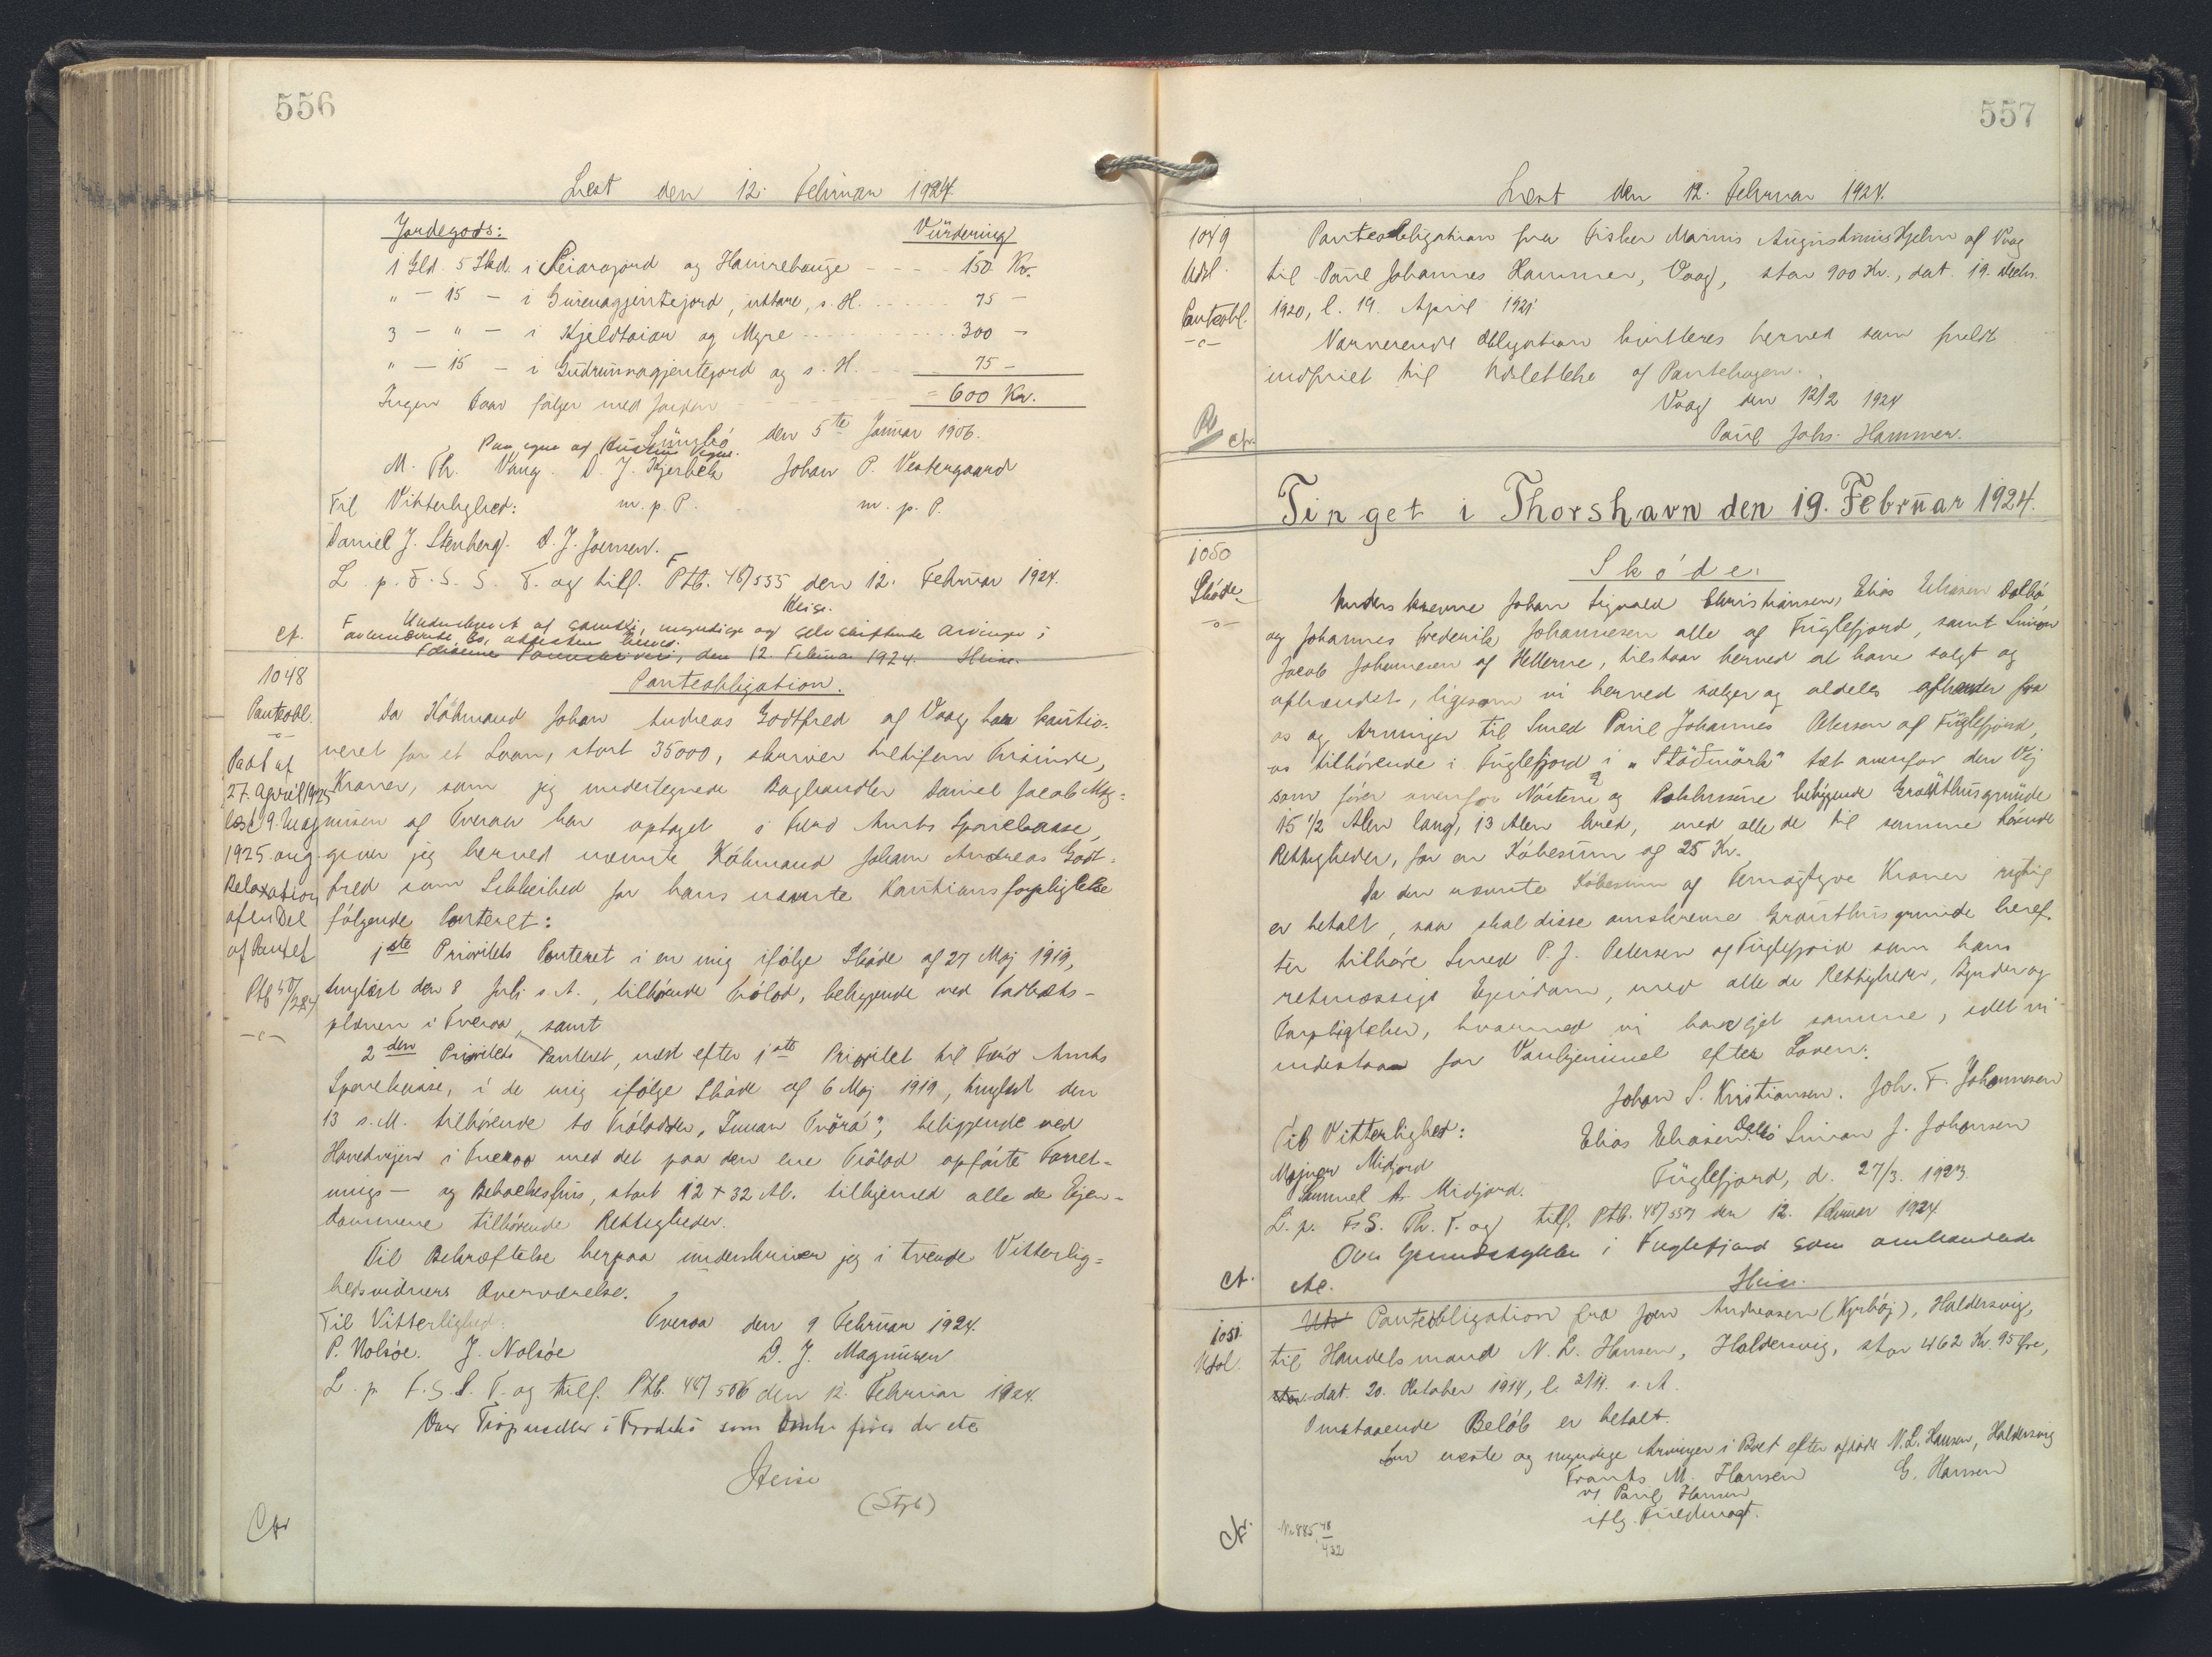 556
Læst den 12. Februar 1924.
Jordegods: Vürdering
1 Gld. 5 Skd. i Leiaragjord og Hamrehauge - - - 150 Kr.
" - 15 - i Gürenagjentejord, uttare, s. H. ...... 75 -
3 - " - i Kjeldtaiar og Myre ........ 300 -
" - 15 - i Gudrunnagjentejord og s. H. - 75 -
Ingen Faar følger med Jorden - - - = 600 Kr.
Sümbö den 5te Januar 1906.
Paa egne og Hustrus Vegne.
M. Th. Vang. D. J. Kjerbek Johan P. Vestergaard
Til Vitterlighed: m. p. P. m. p. P.
Daniel J. Stenberg. D. J. Joensen.
L. p. F. S. S. T. og tilf. Ptb. 48/555 den 12. Februar 1924.
Heise.
F Underskrevet af samtlige, myndige og selvskiftende Arvinger i
ovennævnte Bo, attesteres herved.
Færøernes Sorenskriveri, den 12. Februar 1924. Heise.
ct.
1048
Panteobl.
-o-
Paat af
27. April 1925
læst 9. Maj
1925 ang.
Relaxation
af en Del
af Pantet
Ptb 50/284
-c-
Panteobligation.
Da Köbmand Johan Andreas Godtfred af Vaag har kautio-
neret for et Laan, stort 35000, skriver tretifem Tusinde,
Kroner, som jeg undertegnede Boghandler Daniel Jacob Mag-
nusen af Tveraa har optaget i Færø Amts Sparekasse,
giver jeg herved nævnte Köbmand Johan Andreas Godt-
fred som Sikkerhed for hans nævnte Kautionsforpligtelse
følgende Panteret:
1ste Prioritets Panteret i en mig ifølge Skøde af 27 Maj 1919,
tinglæst den 8 Juli s. A., tilhørende Trölod, beliggende ved Badbæks-
plænen i Tveraa, samt
2den Prioritets Panteret, næst efter 1ste Prioritet til Færö Amts
Sparekasse, i de mig ifølge Skøde af 6 Maj 1919, tinglæst den
13 s. M. tilhørende to Trölodder, "Innan Tvörá", beliggende ved
Hovedvejen i Tveraa med det paa den ene Trölod opførte Forret-
nings- og Beboelseshus, stort 12 + 32 Al. tilligemed alle de Ejen-
dommene tilhørende Rettigheder.
Til Bekræftelse herpaa underskriver jeg i tvende Vitterlig-
hedsvidners Overværelse.
Til Vitterlighed: Tveraa den 9 Februar 1924.
P. Nolsöe. J. Nolsöe D. J. Magnusen
L. p. F. S. S. T. og tilf. Ptb. 48/556 den 12. Februar 1924.
Over i Frodebö som
Heise
(Styb)
557
Læst den 12. Februar 1924.
1049
Udsl.
Panteobl.
-c-
Panteobligation fra Fisker Marius Augustinus Hjelm af Vaag
til Paul Johannes Hammer, Vaag, stor 900 Kr., dat. 19. Decbr.
1920, l. 19. April 1921.
Nærværende Obligation kvitteres herved som fuldt
indfriet til Udslettelse af Pantebogen.
Vaag den 12/2 1924
Paul Johs. Hammer.
ct.
Tinget i Thorshavn den 19. Februar 1924.
1050
Skøde
-o-
Sköde:
Underskrevne Johan Sigvald Christiansen, Elias Eliasen Dalbö
og Johannes Frederik Johannesen alle af Fuglefjord, samt Simon
Jacob Johannesen af Hellerne, tilstaar herved at have solgt og
afhændet, ligesom vi herved sælger og aldeles afhænder fra
os og Arvinger til Smed Paul Johannes Petersen af Fuglefjord,
os tilhørende i Fuglefjord i "Stødmörk" tæt ovenfor den Vej
som fører ovenfor Nöstene og Pakhusene beliggende Grunthusgrunde
15 1/2 Alen lang, 13 Alen bred, med alle de til samme hørende
Rettigheder, for en Købesum af 25 Kr.
Da den nævnte Købesum af Femogtyve Kroner rigtig
er betalt, saa skal disse omskrevne Grunthusgrunde heref-
ter tilhøre Smed P. J. Petersen af Fuglefjord som hans
retmæssige Ejendom, med alle de Rettigheder, Byrder og
Forpligtelser, hvormed vi have ejet samme, idet vi
indestaar for Vanhjemmel efter Loven.
Johan S. Kristiansen. Joh. F. Johannesen
Til Vitterlighed: Elias Eliasen Dalbö Simon J. Johansen
Majnar Midjord Fuglefjord, d. 27/3. 1923.
Samuel A. Midjord.
L. p. F. S. Th. T. og tilf. Ptb. 48/557 den 12. Februar 1924
Over Grundstykke i Fuglefjord som omhandlede
ct. etc. Heise.
1051
Udsl.
Uds Panteobligation fra Joen Andreasen (Kyrhöj), Haldersvig,
til Handelsmand N. L. Hansen, Haldersvig, stor 462 Kr. 95 Øre,
stor dat. 20. Oktober 1914, l. 3/11. s. A.
Omstaaende Beløb er betalt.
Som eneste og myndige Arvinger i Boet efter afdøde N. L. Hansen, Haldersvig
Frants M. Hansen G. Hansen
v/ Paul Hansen
iflg. Fuldmagt.
ct. Nr 885, 48/432